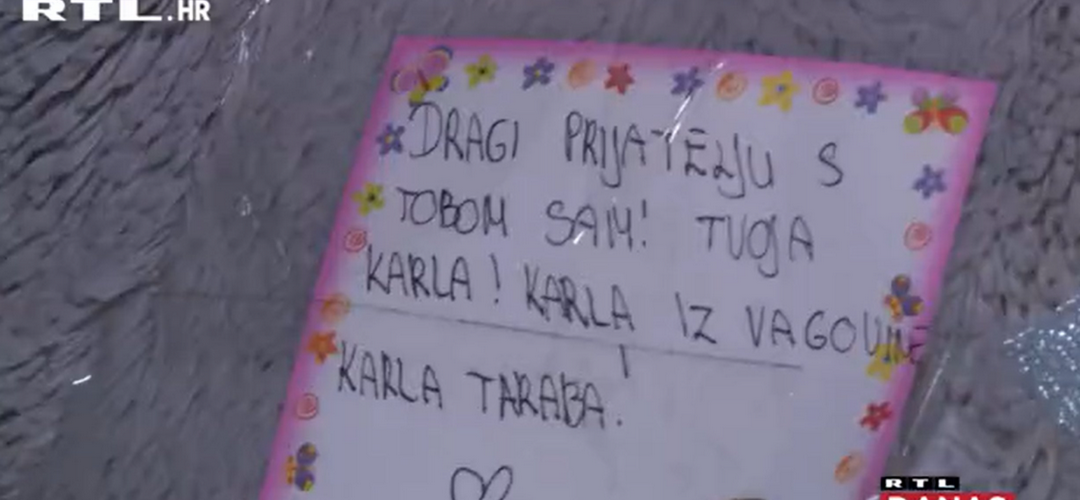 RTL.HR
DRAGI PRIJATELJU S
TOBOM SAM! TUGA
KARLA! KARLA IZ VAGOVINE
KARLA TARABA.
RTL
DANAS